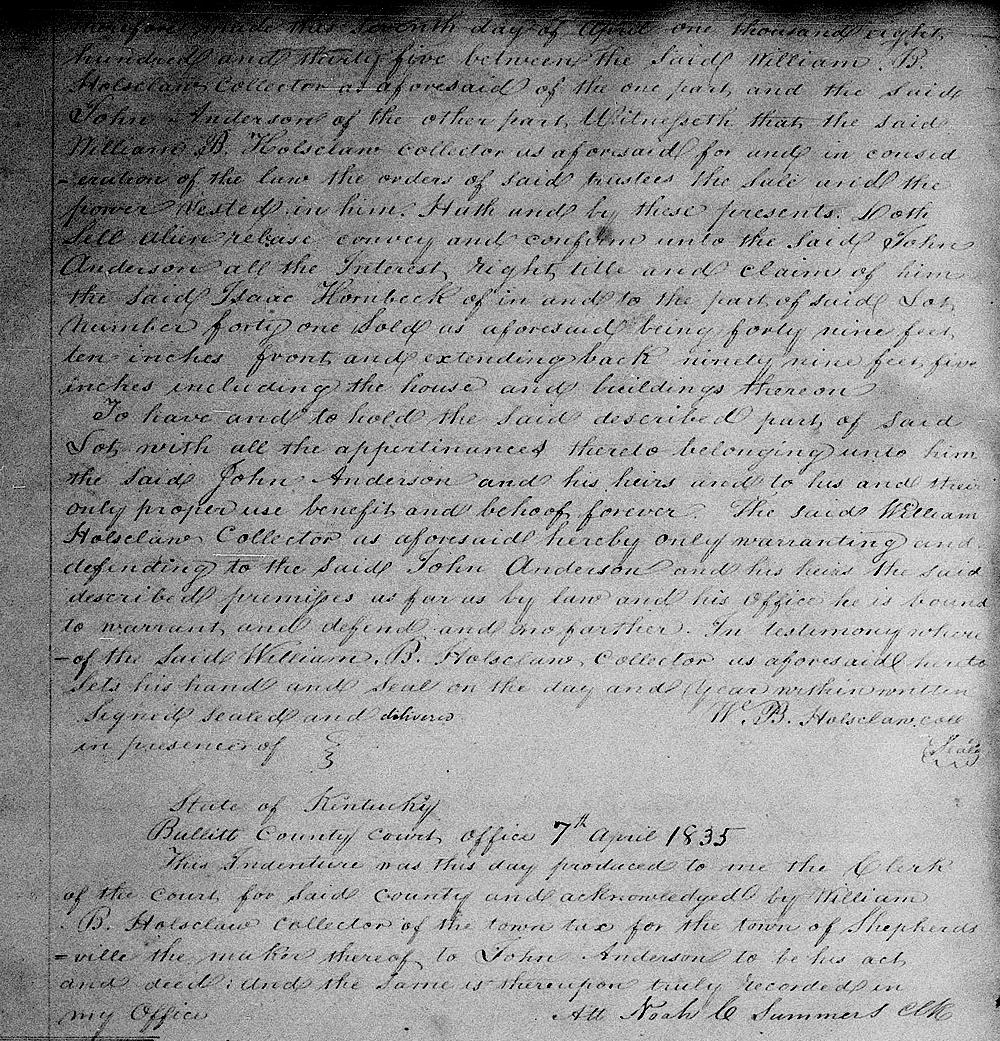 made this seventh day of April one thousand eight
hundred and thirty five between the said William B.
Holsclaw Collector as aforesaid of the one part and the said
John Anderson of the other part Witnesseth that the said
William B. Holsclaw collector as aforesaid for and in consid
-eration of the law the orders of said trustees the sale and the
power Vested in him. Hath and by these presents. Doth
Sell alien release convey and confirm unto the said John
Anderson all the Interest right title and claim of him
the said Isaac Hornbeck of in and to the part of said Lot
number forty one Sold as aforesaid being forty nine feet
ten inches front and extending back ninety nine feet five
inches including the house and buildings thereon
To have and to hold the said described part of said
Lot with all the appertinances thereto belonging unto him
the said John Anderson and his heirs and to his and their
only proper use benefit and behoof forever. The said William
Holsclaw Collector as aforesaid hereby only warranting and
defending to the said John Anderson and his heirs the said
described premises as far as by law and his Office he is bound
to warrant and defend and no farther. In testimony where
-of the said William. B. Holsclaw Collector as aforesaid hereto
Sets his hand and seal on the day and Year within written
Signed sealed and delivered W. B. Holsclaw. coll
in presence of } Seal
State of Kentucky
Bullitt County court office 7th April 1835
This Indenture was this day produced to me the Clerk
of the court for said county and acknowledged by William
B. Holsclaw collector of the town tax for the town of Shepherds
=ville the maker thereof to John Anderson to be his act
and deed: and the same is thereupon truly recorded in
my Office Att Noah C Summers Clk